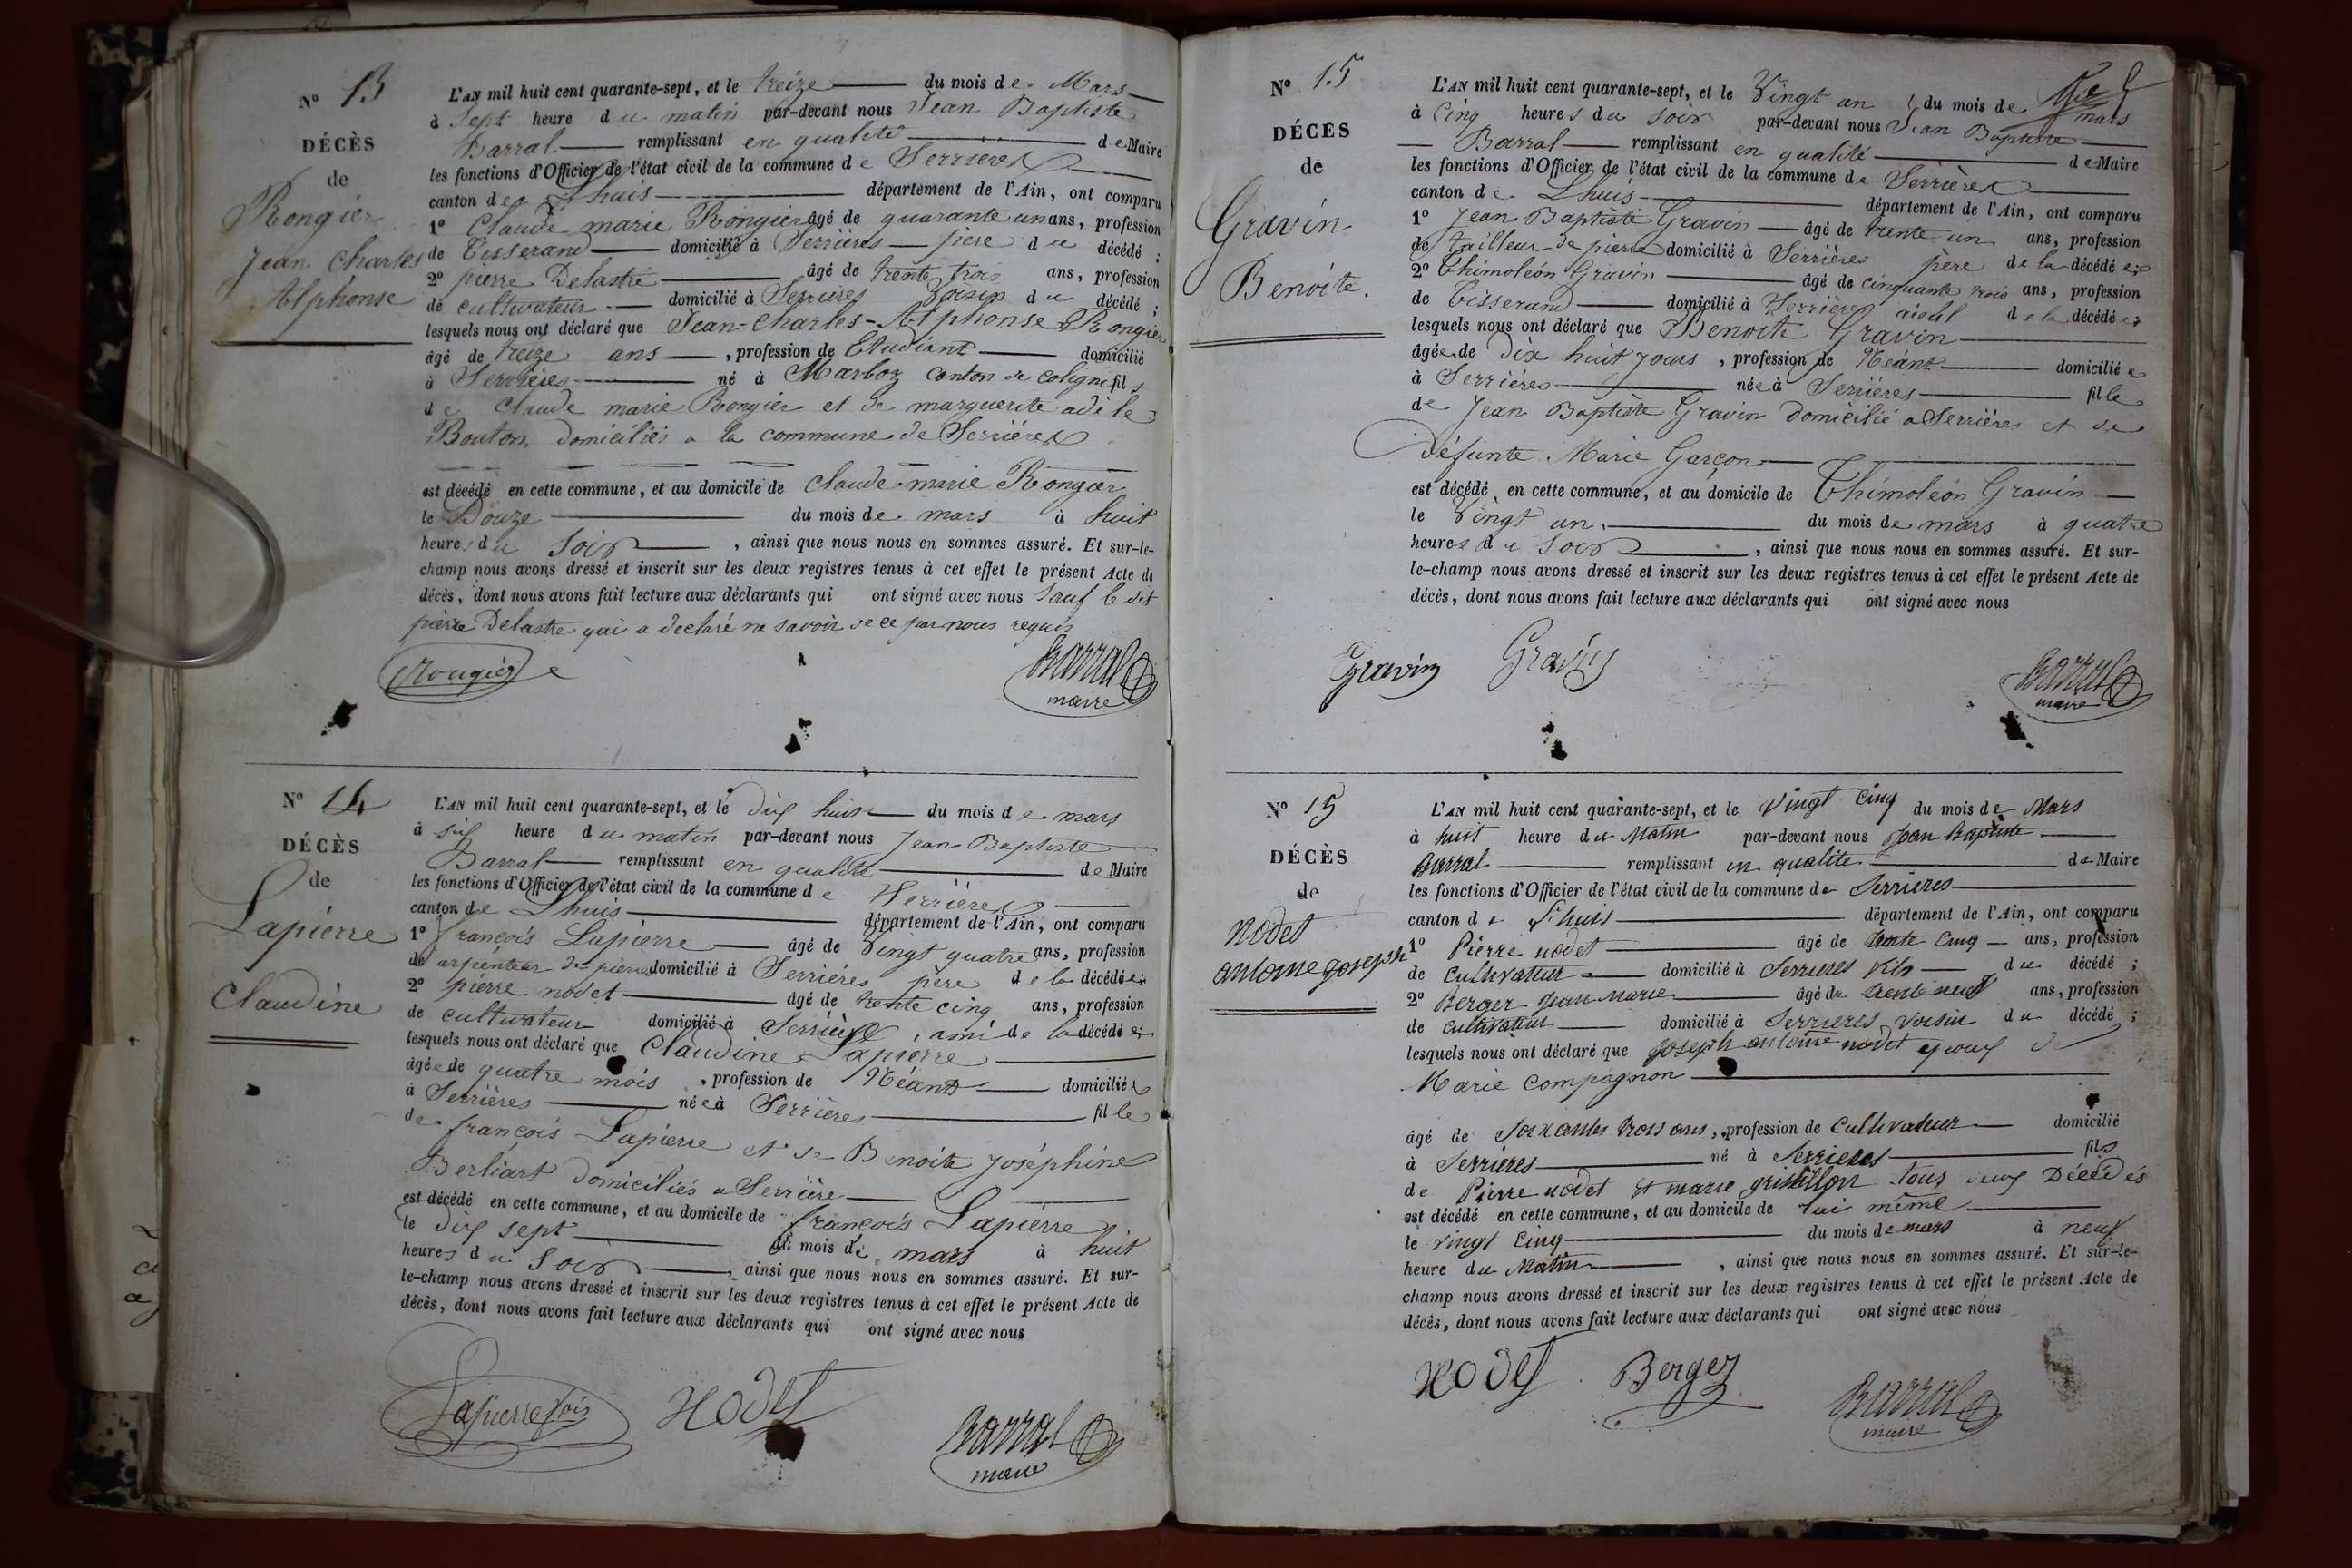 N° 13
DÉCÈS
de
Rongier
Jean Charles
Alphonse
L'AN mil huit cent quarante-sept, et le treize du mois de Mars
à Sept heure du matin par-devant nous Jean Baptiste
Barral remplissant en qualité de Maire
les fonctions d'Officier de l'état civil de la commune de Serrières
canton de Lhuis département de l'Ain, ont comparu
1° Claude marie Rongier âgé de quarante un ans, profession
de Tisserand domicilié à Serrières père du décédé ;
2° pierre Delastre âgé de trente trois ans, profession
de cultivateur domicilié à Serrières Voisin du décédé ;
lesquels nous ont déclaré que Jean-Charles-Alphonse Rongier
âgé de treize ans, profession de Etudiant domicilié
à Serrières né à Marboz canton de coligni fils
de Claude marie Rongier et de marguerite adèle
Bouton, domiciliés a la commune de Serrières
est décédé en cette commune, et au domicile de Claude marie Rongier
le Douze du mois de mars à huit
heures du Soir, ainsi que nous nous en sommes assuré. Et sur-le-
champ nous avons dressé et inscrit sur les deux registres tenus à cet effet le présent Acte de
décès, dont nous avons fait lecture aux déclarants qui ont signé avec nous Sauf le dit
pierre Delastre qui a declaré ne savoir de ce par nous requis
Rougier
Barral
maire
N° 14
DÉCÈS
de
Lapierre
Claudine
L'AN mil huit cent quarante-sept, et le dix huit du mois de mars
à six heure du matin par-devant nous Jean Baptiste
Barral remplissant en qualité de Maire
les fonctions d'Officier de l'état civil de la commune de Serrières
canton de Lhuis département de l'Ain, ont comparu
1° françois Lapierre âgé de Vingt quatre ans, profession
de arpenteur de pierre domicilié à Serrières père de la décédée ;
2° pierre nodet âgé de trente cinq ans, profession
de cultivateur domicilié à Serrières, ami de la décédée ;
lesquels nous ont déclaré que Claudine Lapierre
âgée de quatre mois, profession de Néant domiciliée
à Serrières née à Serrières fille
de françois Lapierre et de Benoite Joséphine
Berliart domiciliés a Serrière
est décédé en cette commune, et au domicile de françois Lapierre
le dix sept du mois de mars à huit
heures du Soir, ainsi que nous nous en sommes assuré. Et sur-
le-champ nous avons dressé et inscrit sur les deux registres tenus à cet effet le présent Acte de
décès, dont nous avons fait lecture aux déclarants qui ont signé avec nous
Lapierre fois
Nodet
Barral
maire
N° 15
DÉCÈS
de
Gravin
Benoite.
L'AN mil huit cent quarante-sept, et le Vingt un du mois de
mars
à Cinq heures du soir par-devant nous Jean Baptiste
Barral remplissant en qualité de Maire
les fonctions d'Officier de l'état civil de la commune de Serrières
canton de Lhuis département de l'Ain, ont comparu
1° Jean Baptiste Gravin âgé de trente un ans, profession
de tailleur de pierre domicilié à Serrières père de la décédée ;
2° Thimoléon Gravin âgé de cinquante trois ans, profession
de Tisserand domicilié à Serrières aïeul de la décédée ;
lesquels nous ont déclaré que Benoite Gravin
âgée de Dix huit jours, profession de Néant domiciliée
à Serrières née à Serrières fille
de Jean Baptiste Gravin domicilié a Serrières et de
Défunte Marie Garçon
est décédé, en cette commune, et au domicile de Thimoléon Gravin
le Vingt un du mois de mars à quatre
heures du Soir, ainsi que nous nous en sommes assuré. Et sur-
le-champ nous avons dressé et inscrit sur les deux registres tenus à cet effet le présent Acte de
décès, dont nous avons fait lecture aux déclarants qui ont signé avec nous
Gravin Gravin
Barral
maire
N° 15
DÉCÈS
de
nodet
antoine joseph
L'AN mil huit cent quarante-sept, et le vingt cinq du mois de Mars
à huit heure du Matin par-devant nous Jean Baptiste
Barral remplissant en qualité de Maire
les fonctions d'Officier de l'état civil de la commune de Serrieres
canton de Lhuis département de l'Ain, ont comparu
1° Pierre nodet âgé de trente cinq ans, profession
de Cultivateur domicilié à Serrieres fils du décédé ;
2° Berger Jean Marie âgé de trente neuf ans, profession
de cultivateur domicilié à Serrieres voisin du décédé ;
lesquels nous ont déclaré que joseph antoine nodet epoux de
Marie Compagnon
âgé de Soixantes trois ans, profession de Cultivateur domicilié
à Serrieres né à Serrieres fils
de Pierre nodet et marie tous deux Décédés
est décédé en cette commune, et au domicile de lui même
le vingt cinq du mois de mars à neuf
heure du Matin, ainsi que nous nous en sommes assuré. Et sur-le-
champ nous avons dressé et inscrit sur les deux registres tenus à cet effet le présent Acte de
décès, dont nous avons fait lecture aux déclarants qui ont signé avec nous
Nodet Berger
Barral
maire